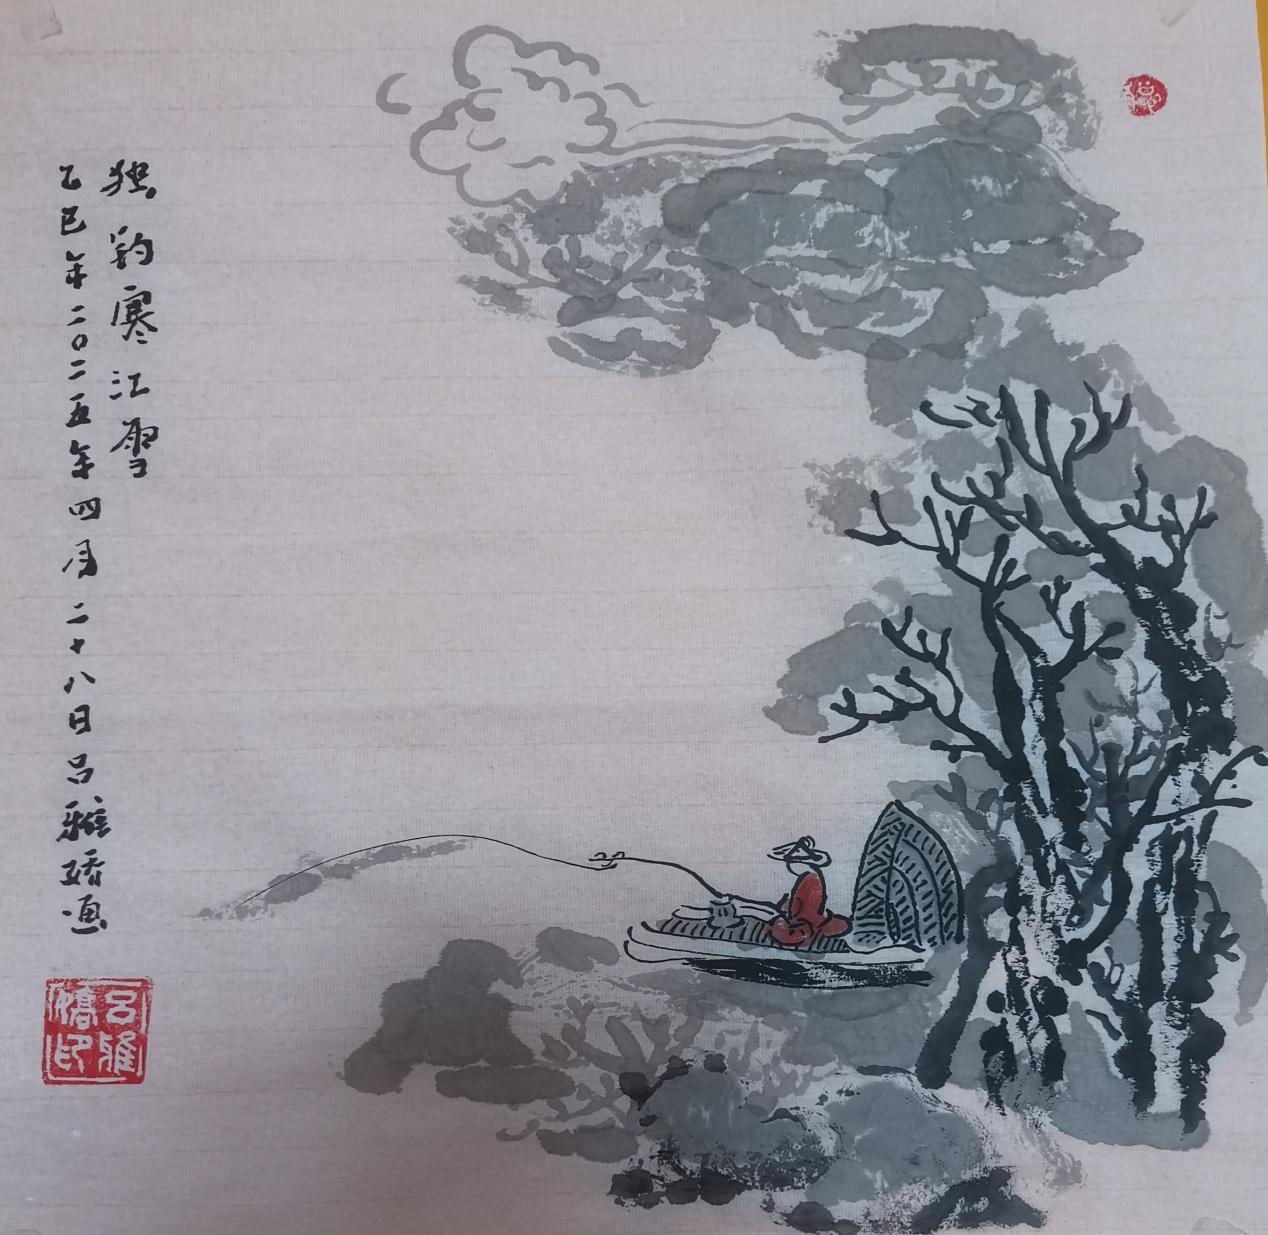 独钓寒江雪
乙巳年二〇二五年四月二十八日吕雅娇画
禅
吕雅娇印